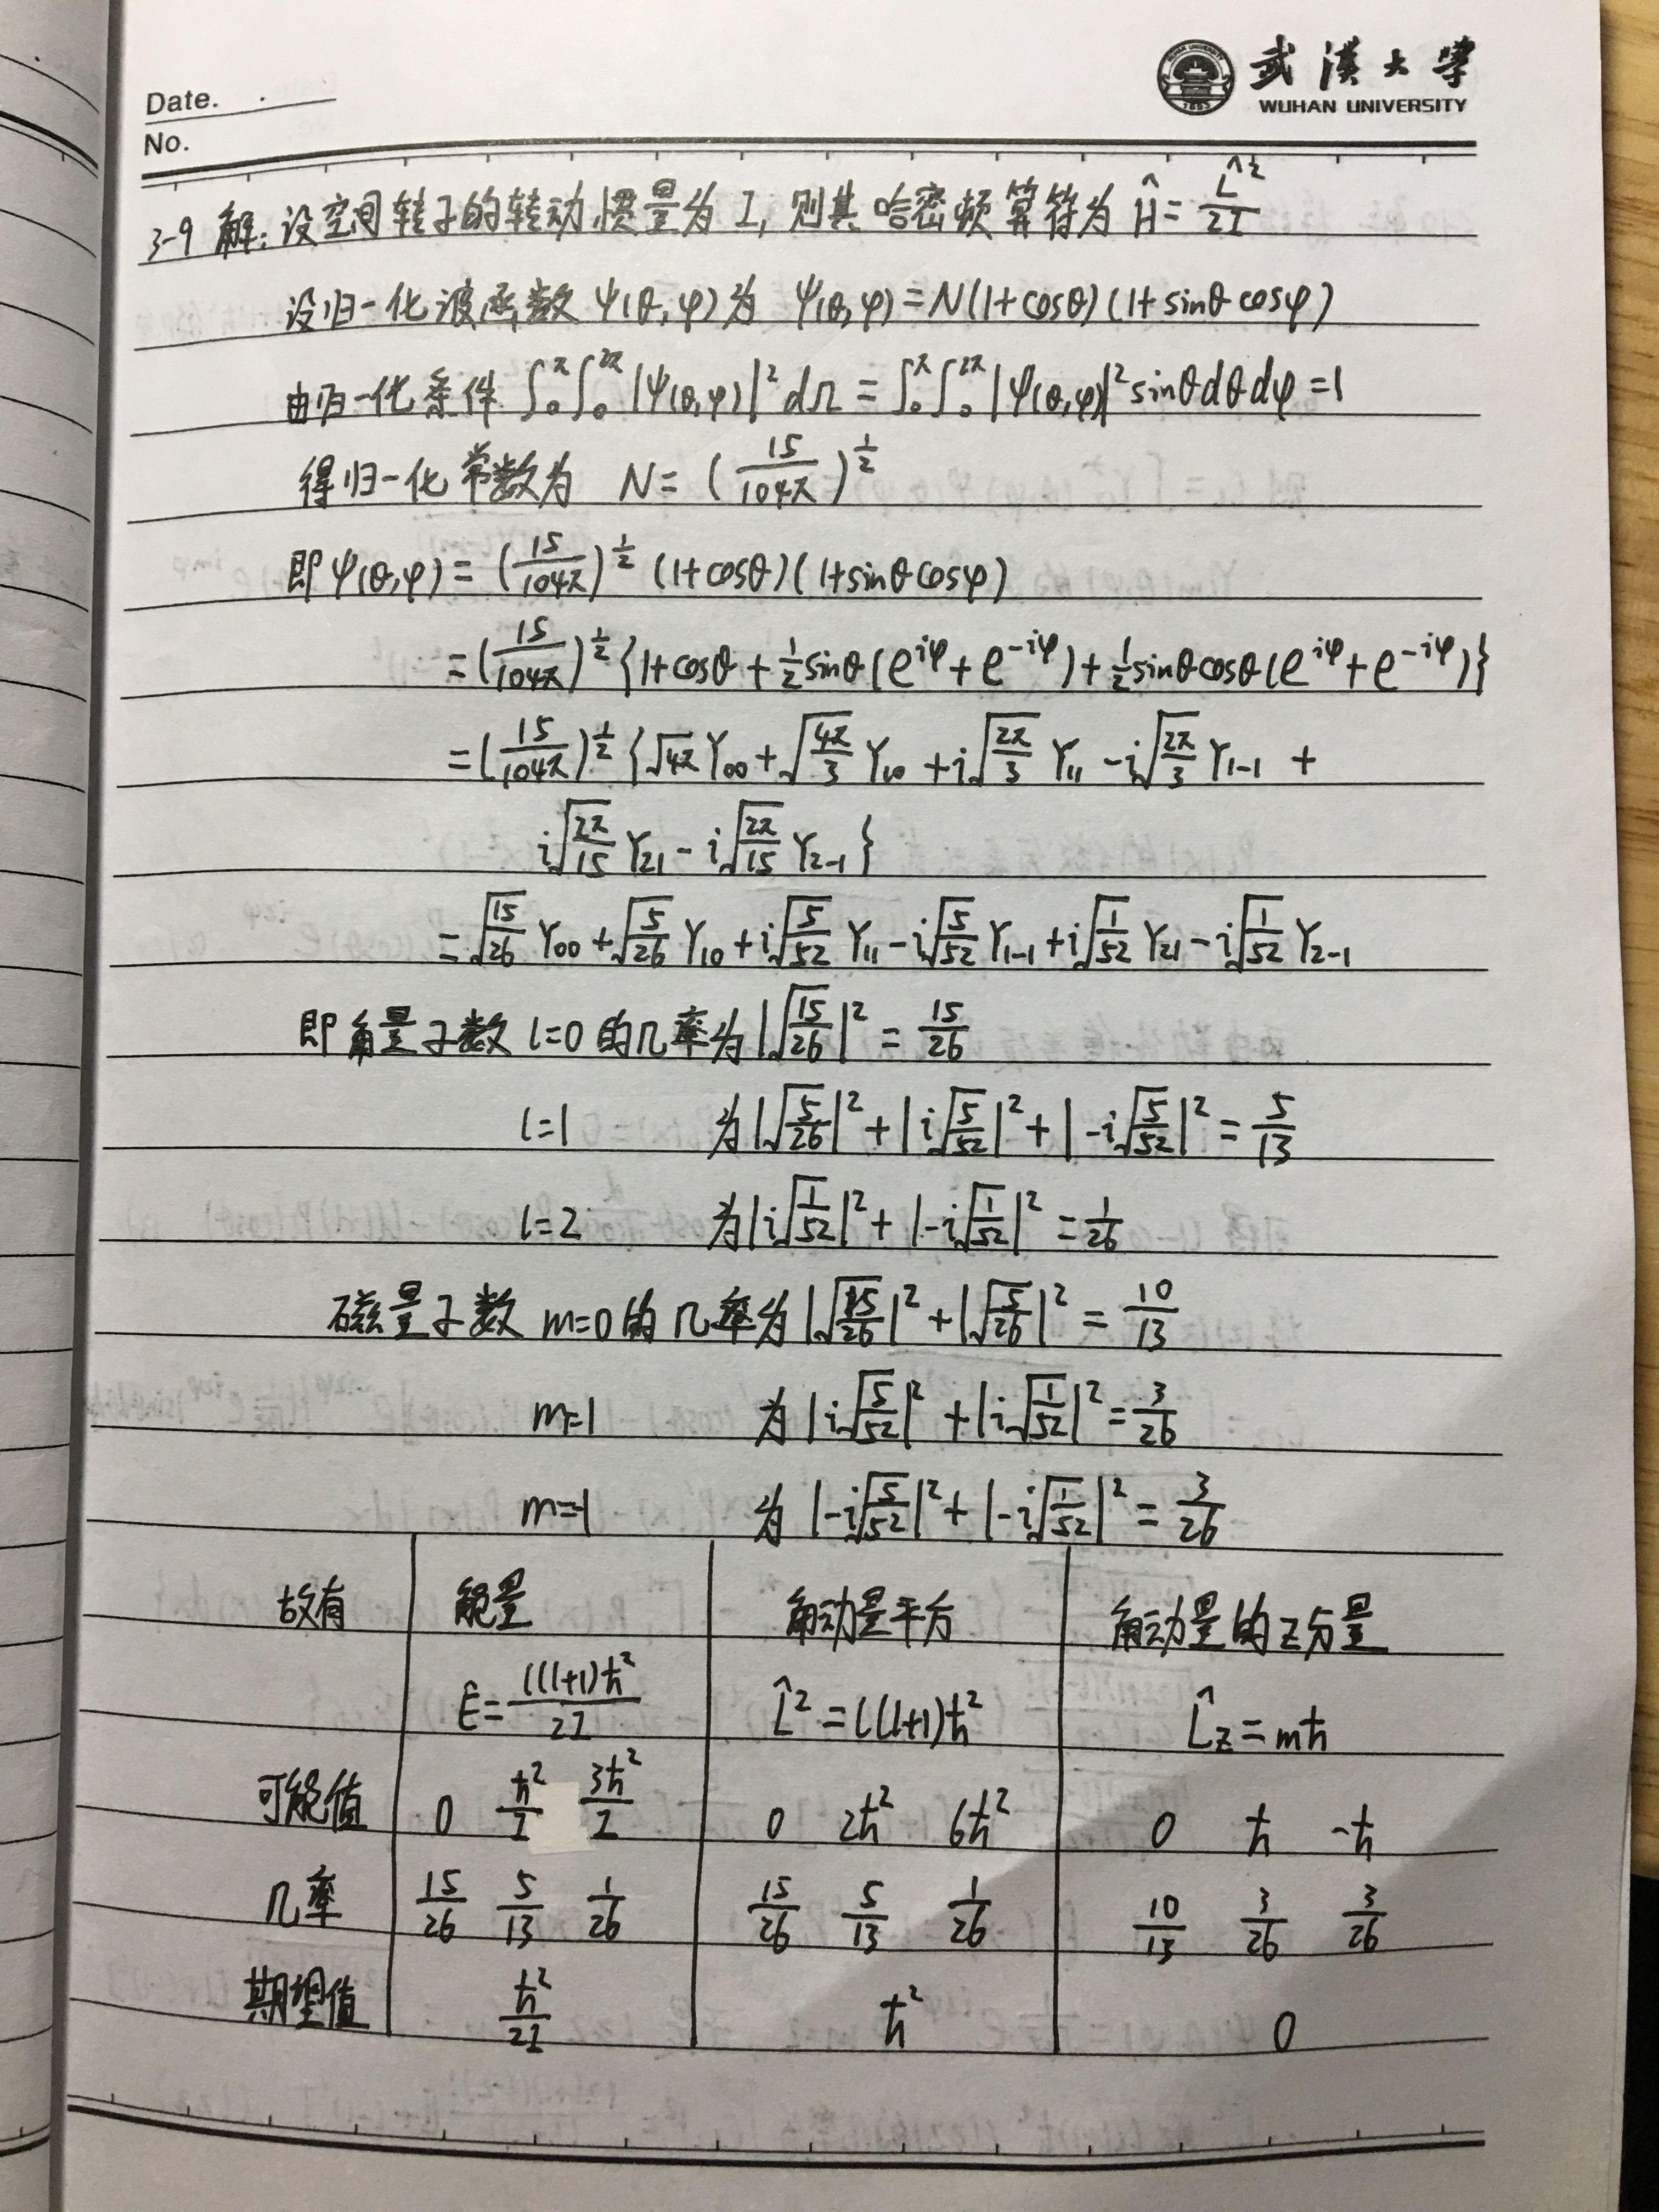 武漢大學
WUHAN UNIVERSITY
Date.
No.
3-9 解: 设空间转子的转动惯量为 I, 则其哈密顿算符为 Ĥ = L̂²/2I
设归一化波函数 ψ(θ,φ)为 ψ(θ,φ) = N(1+cosθ)(1+sinθcosφ)
由归一化条件 ∫₀^π∫₀^2π |ψ(θ,φ)|² dΩ = ∫₀^π∫₀^2π |ψ(θ,φ)|² sinθdθdφ = 1
得归一化常数为 N = (15/104π)^½
即 ψ(θ,φ) = (15/104π)^½ (1+cosθ)(1+sinθcosφ)
= (15/104π)^½ {1+cosθ + ½sinθ(e^iφ + e^-iφ) + ½sinθcosθ(e^iφ + e^-iφ)}
= (15/104π)^½ {√4π Y₀₀ + √(4π/3) Y₁₀ + i√(2π/3) Y₁₁ - i√(2π/3) Y₁₋₁ +
i√(2π/15) Y₂₁ - i√(2π/15) Y₂₋₁}
= √(15/26) Y₀₀ + √(5/26) Y₁₀ + i√(5/52) Y₁₁ - i√(5/52) Y₁₋₁ + i√(1/52) Y₂₁ - i√(1/52) Y₂₋₁
即角量子数 l=0 的几率为 |√(15/26)|² = 15/26
l=1 为 |√(5/26)|² + |i√(5/52)|² + |-i√(5/52)|² = 5/13
l=2 为 |i√(1/52)|² + |-i√(1/52)|² = 1/26
磁量子数 m=0 的几率为 |√(15/26)|² + |√(5/26)|² = 10/13
m=1 为 |i√(5/52)|² + |i√(1/52)|² = 3/26
m=-1 为 |-i√(5/52)|² + |-i√(1/52)|² = 3/26
故有 能量 角动量平方 角动量的z分量
Ê = l(l+1)ħ²/2I L̂² = l(l+1)ħ² L̂z = mħ
可能值 0 ħ²/I 3ħ²/I 0 2ħ² 6ħ² 0 ħ -ħ
几率 15/26 5/13 1/26 15/26 5/13 1/26 10/13 3/26 3/26
期望值 ħ²/2I ħ² 0